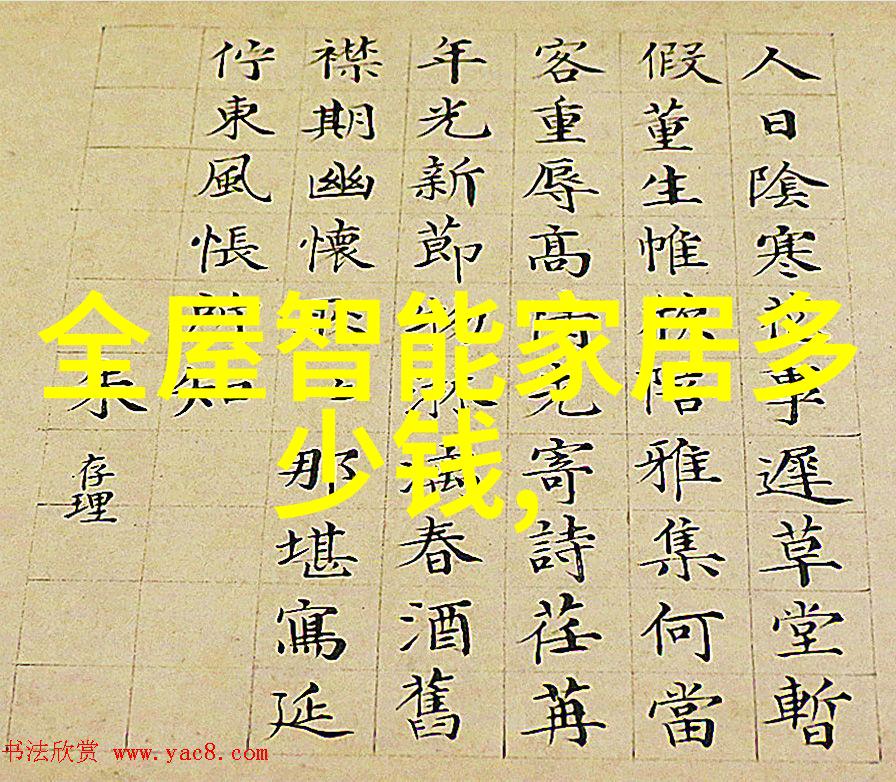 全屋智能家居多
少钱,
人日陰寒事遲草堂暫
假董生帷陪雅集何當
客重辱高寄詩荏苒
年光新節物春酒舊
襟期幽懷那堪寫延
佇東風悵知
未
存理
书法欣赏 www.yac8.com